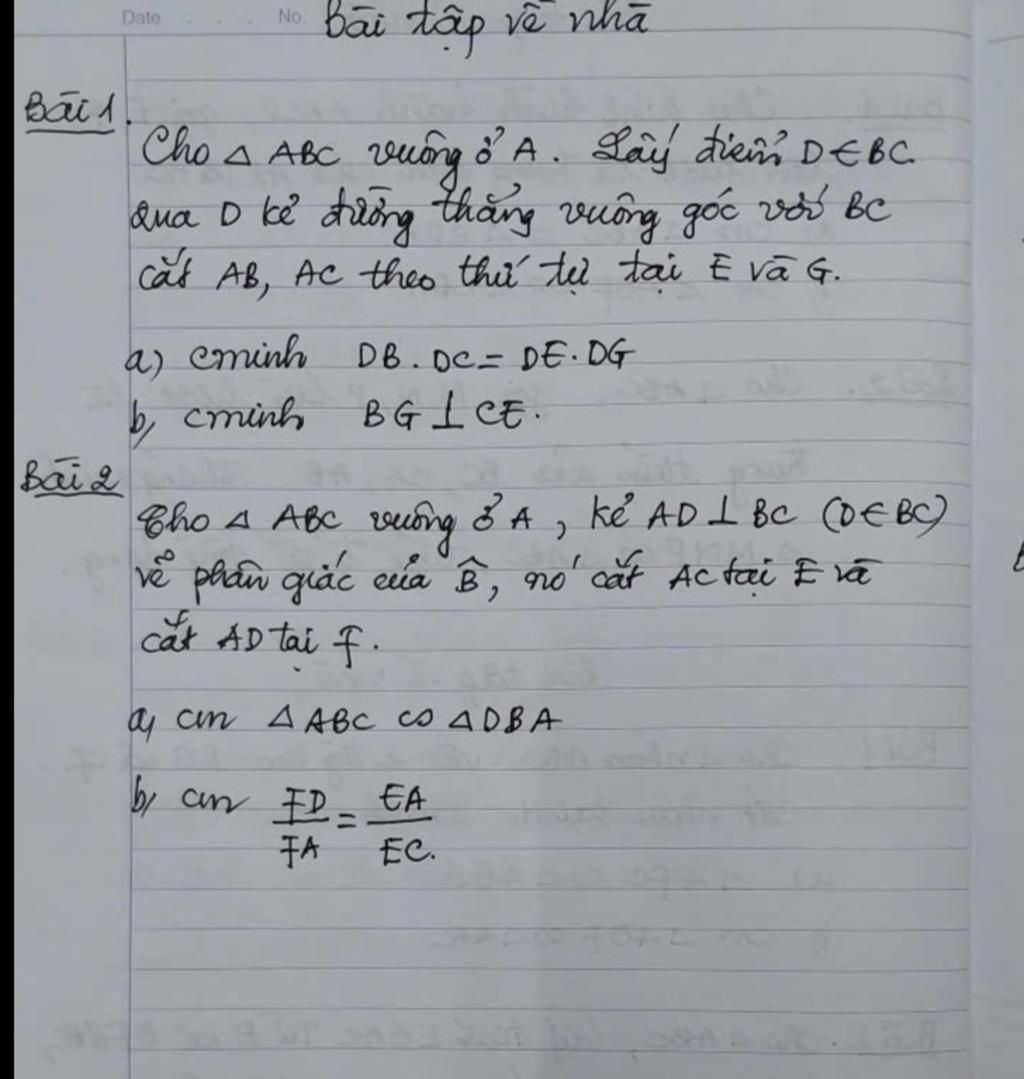 Date . . . No. Bài tập về nhà
Bài 1.
Cho △ ABC vuông ở A. Lấy điểm D ∈ BC
Qua D kẻ đường thẳng vuông góc với BC
cắt AB, AC theo thứ tự tại E và G.
a) cminh DB . DC = DE . DG
b, cminh BG ⊥ CE.
Bài 2
Cho △ ABC vuông ở A, kẻ AD ⊥ BC (D ∈ BC)
vẽ phân giác của B̂, nó cắt AC tại E và
cắt AD tại F.
a, cm △ ABC ∽ △ DBA
b, cm FD/FA = EA/EC.